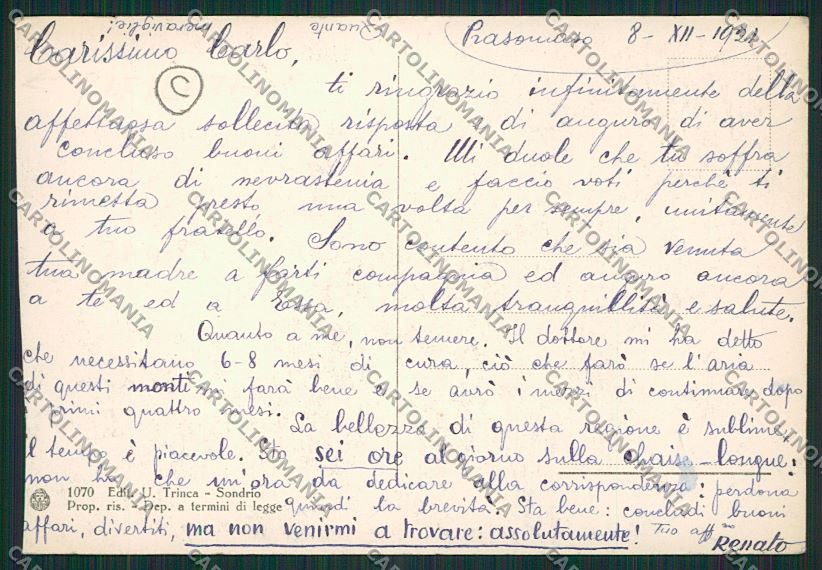 Quante meraviglie!
Prasomaso 8-XII-1921
Carissimo Carlo,
C
ti ringrazio infinitamente della
affettuosa sollecita risposta e di auguro di aver
concluso buoni affari. Mi duole che tu soffra
ancora di nevrastenia e faccio voti perchè ti
rimetta presto una volta per sempre, unitamente
a tuo fratello. Sono contento che sia venuta
tua madre a farti compagnia ed auguro ancora
a te ed a Essa, molta tranquillità e salute.
Quanto a me, non temere. Il dottore mi ha detto
che necessitano 6-8 mesi di cura, ciò che farò se l'aria
di questi monti mi farà bene e se avrò i mezzi di continuare dopo
i primi quattro mesi.
La bellezza di questa regione è sublime,
il tempo è piacevole. Sto sei ore al giorno sulla chaise-longue:
non ho che un'ora da dedicare alla corrispondenza: perdona
1070 Ediz. U. Trinca - Sondrio
Prop. ris. - Dep. a termini di legge
quindi la brevità. Sta bene: concludi buoni
affari, divertiti, ma non venirmi a trovare: assolutamente! Tuo aff.mo
Renato
CARTOLINOMANIA